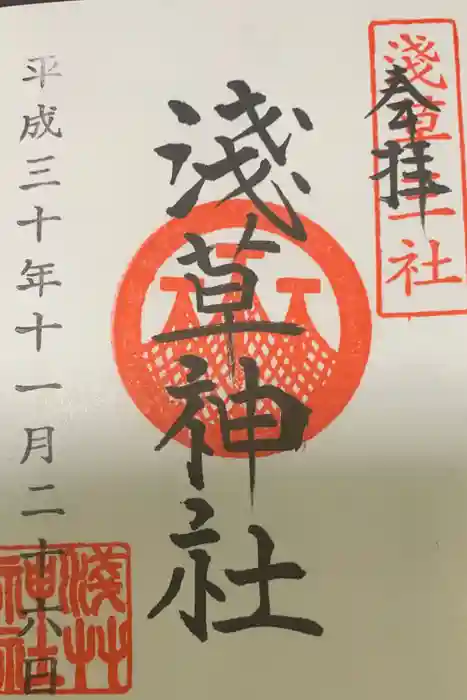 奉拝
淺草三社
淺草神社
平成三十年十一月二十六日
淺草神社